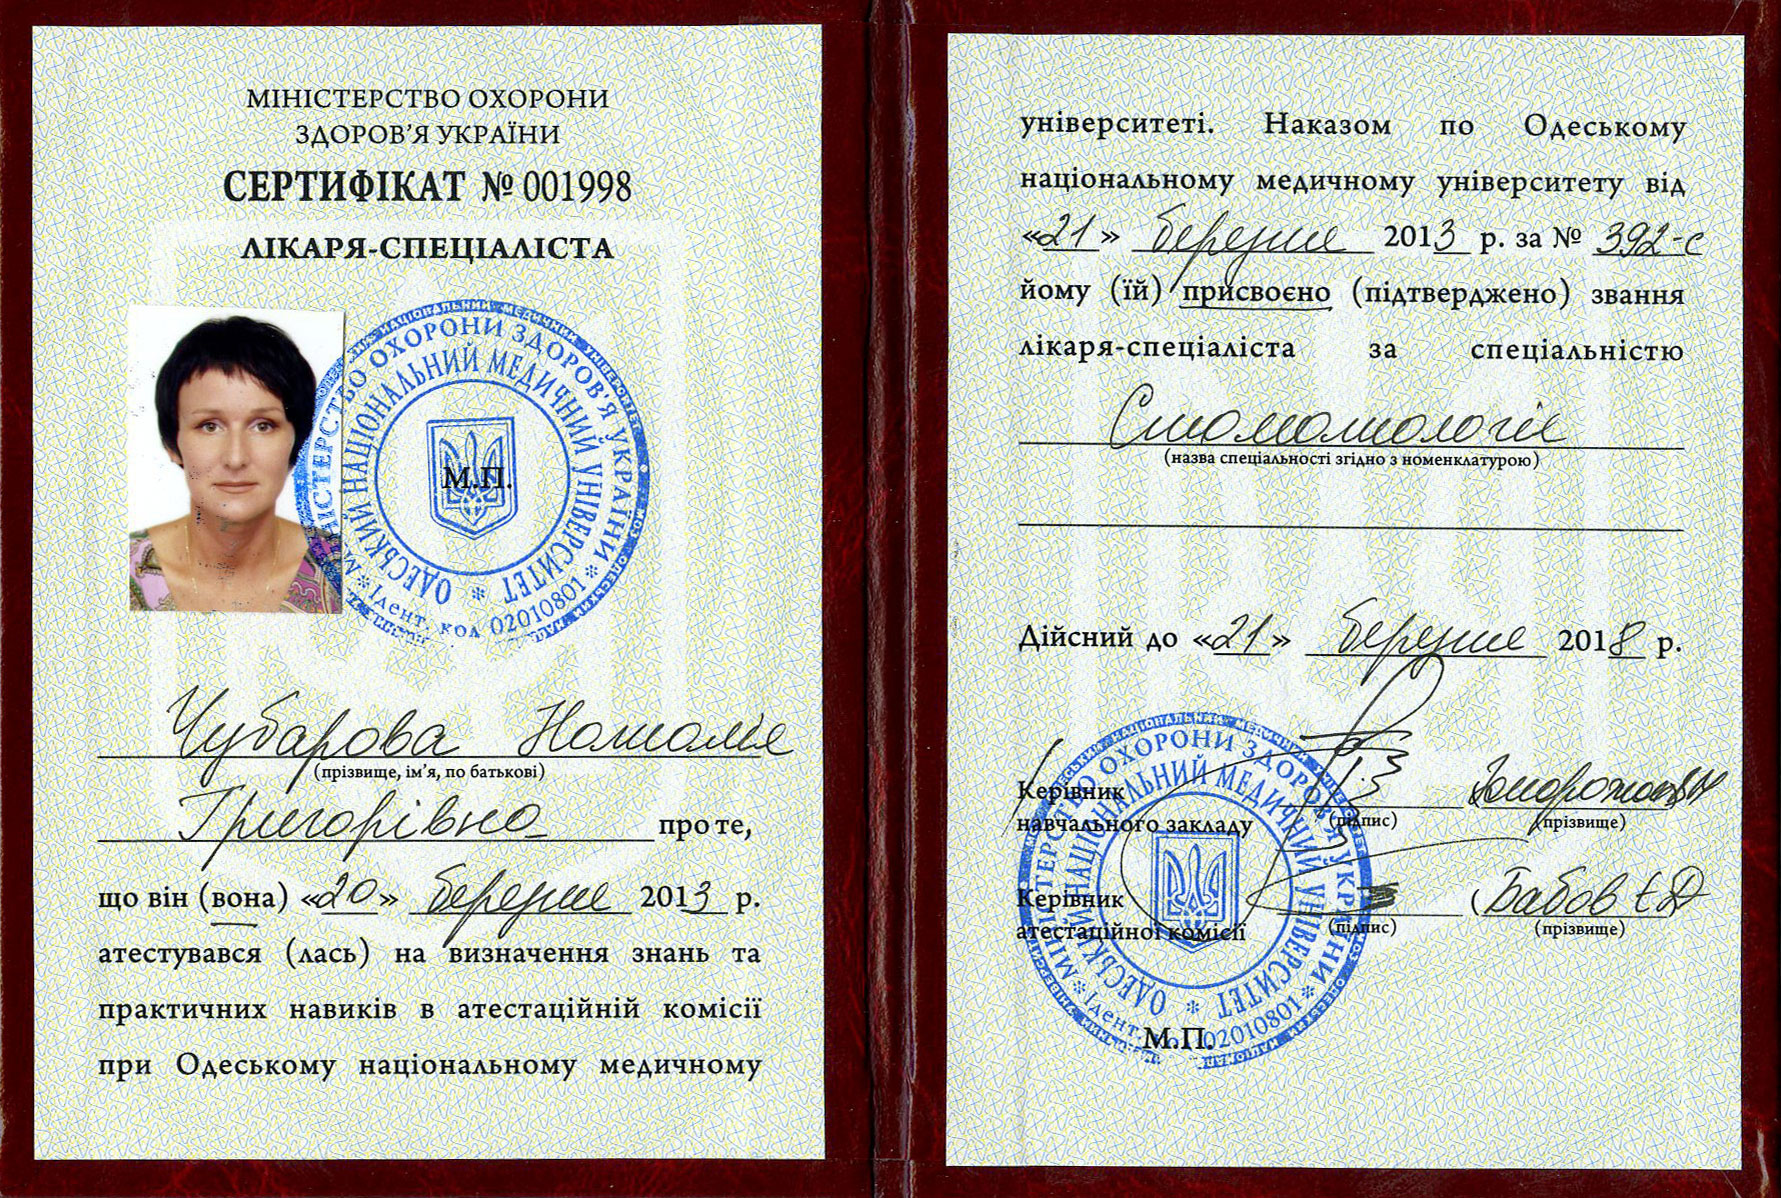 МІНІСТЕРСТВО ОХОРОНИ
ЗДОРОВ'Я УКРАЇНИ
СЕРТИФІКАТ № 001998
ЛІКАРЯ-СПЕЦІАЛІСТА
МІНІСТЕРСТВО ОХОРОНИ ЗДОРОВ'Я УКРАЇНИ
ОДЕСЬКИЙ НАЦІОНАЛЬНИЙ МЕДИЧНИЙ УНІВЕРСИТЕТ
Ідент. код 02010801
М.П.
Чубарова Наталія
(прізвище, ім'я, по батькові)
Григорівна про те,
що він (вона) «20» березня 2013 р.
атестувався (лась) на визначення знань та
практичних навиків в атестаційній комісії
при Одеському національному медичному
університеті. Наказом по Одеському
національному медичному університету від
«21» березня 2013 р. за № 392-с
йому (їй) присвоєно (підтверджено) звання
лікаря-спеціаліста за спеціальністю
Стоматологія
(назва спеціальності згідно з номенклатурою)
Дійсний до «21» березня 2018 р.
Керівник
навчального закладу (підпис) (прізвище)
Керівник Бабов Є.Д
атестаційної комісії (підпис) (прізвище)
МІНІСТЕРСТВО ОХОРОНИ ЗДОРОВ'Я УКРАЇНИ
ОДЕСЬКИЙ НАЦІОНАЛЬНИЙ МЕДИЧНИЙ УНІВЕРСИТЕТ
Ідент. 02010801
М.П.